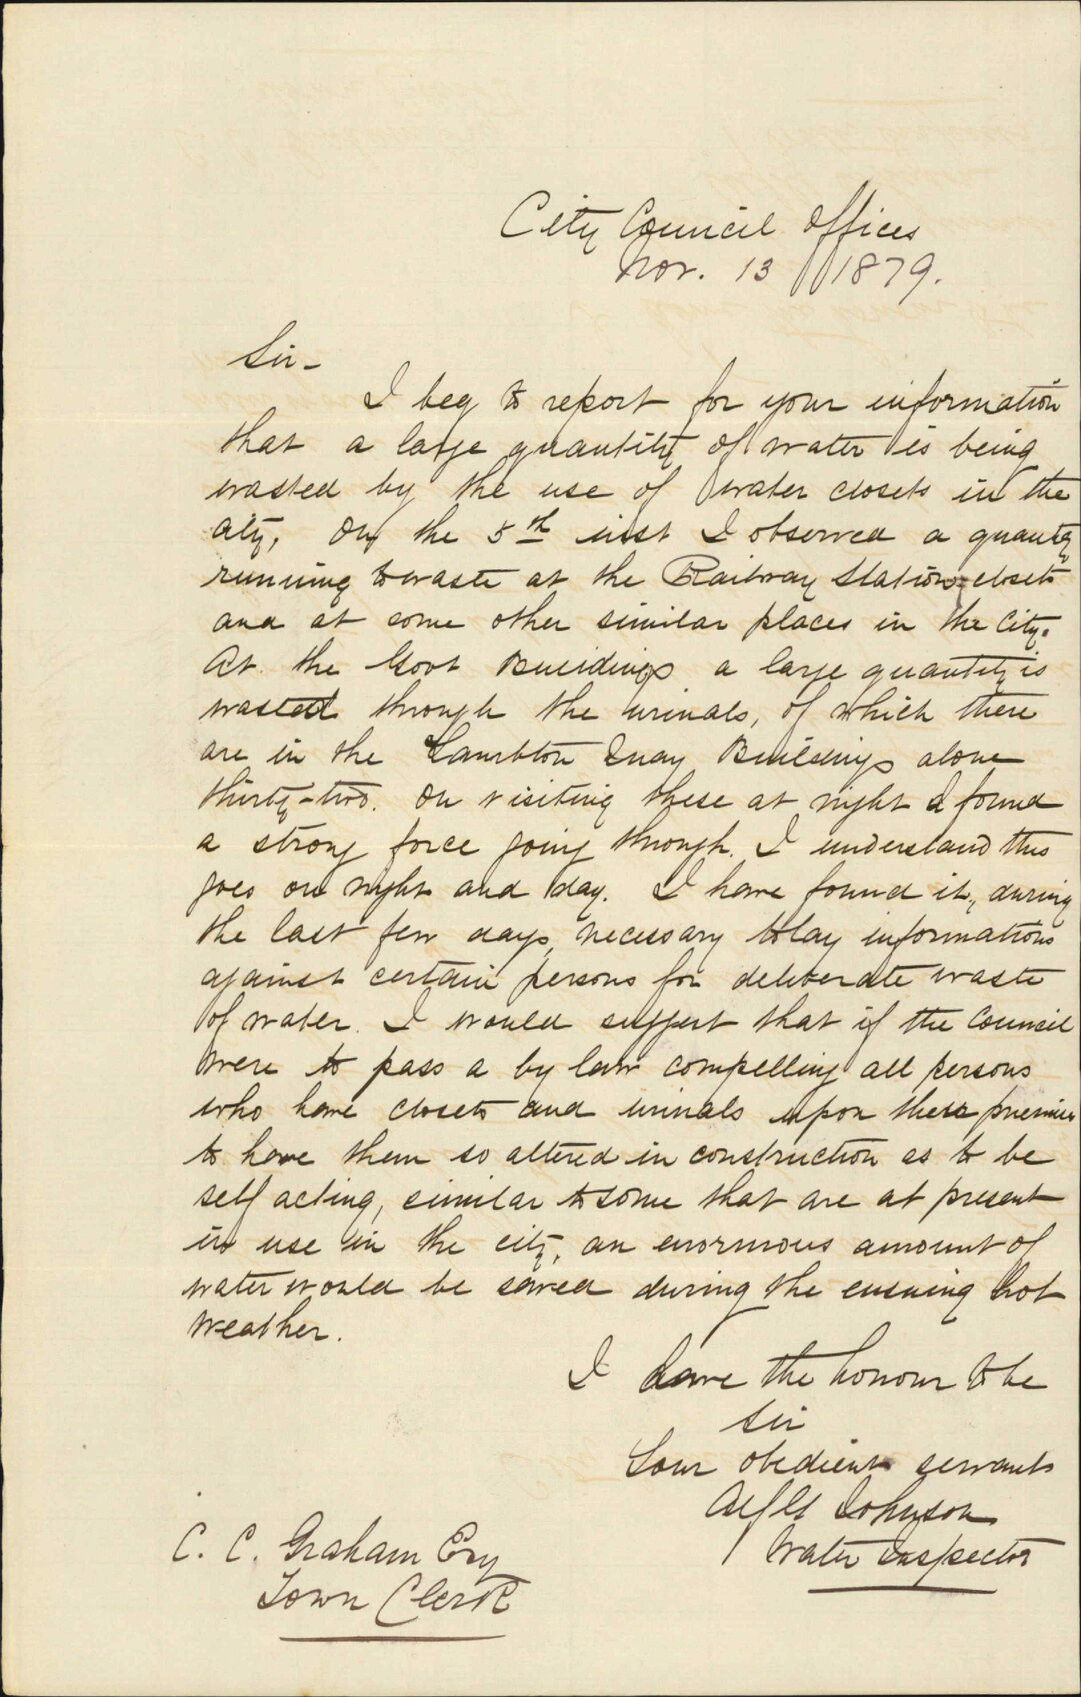 City Council Offices
Nov. 13 1879.
Sir -
I beg to report for your information
that a large quantity of water is being
wasted by the use of water closets in the
city. On the 5th inst I observed a quantity
running to waste at the Railway Station closets
and at some other similar places in the City.
At the Govt Buildings a large quantity is
wasted through the urinals, of which there
are in the Lambton Quay Buildings alone
thirty-two. On visiting these at night I found
a strong force going through. I understand this
goes on night and day. I have found it, during
the last few days, necessary to lay informations
against certain persons for deliberate waste
of water. I would suggest that if the Council
were to pass a by law compelling all persons
who have closets and urinals upon these premises
to have them so altered in construction as to be
self acting, similar to some that are at present
in use in the city, an enormous amount of
water would be saved during the ensuing hot
weather.
I have the honour to be
Sir
Your obedient servant
Johnson
Water Inspector
C. C. Graham Esq
Town Clerk